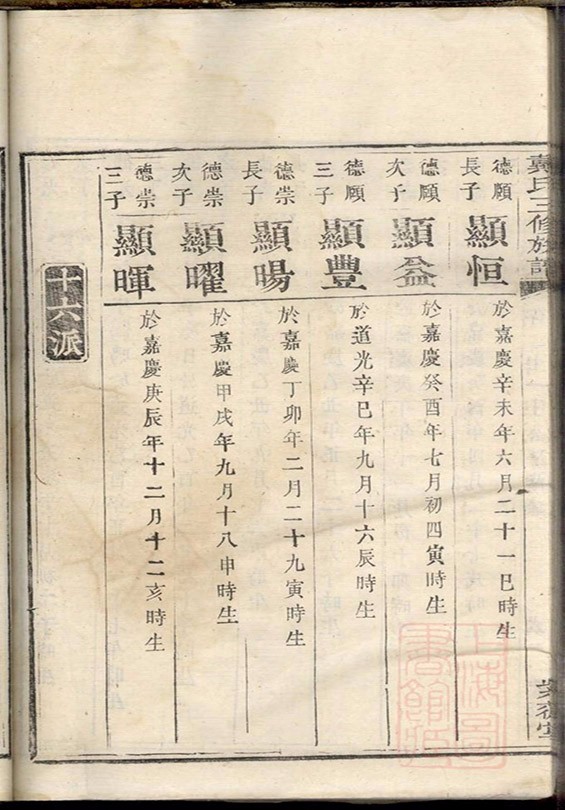 戴氏三修族譜
德願
長子
顯恒
於嘉慶辛未年六月二十一巳時生
德願
次子
顯益
於嘉慶癸酉年七月初四寅時生
德願
三子
顯豐
於道光辛巳年九月十六辰時生
德崇
長子
顯暘
於嘉慶丁卯年二月二十九寅時生
德崇
次子
顯曜
於嘉慶甲戌年九月十八申時生
德崇
三子
顯暉
於嘉慶庚辰年十二月十二亥時生
十六派
上海圖書館藏